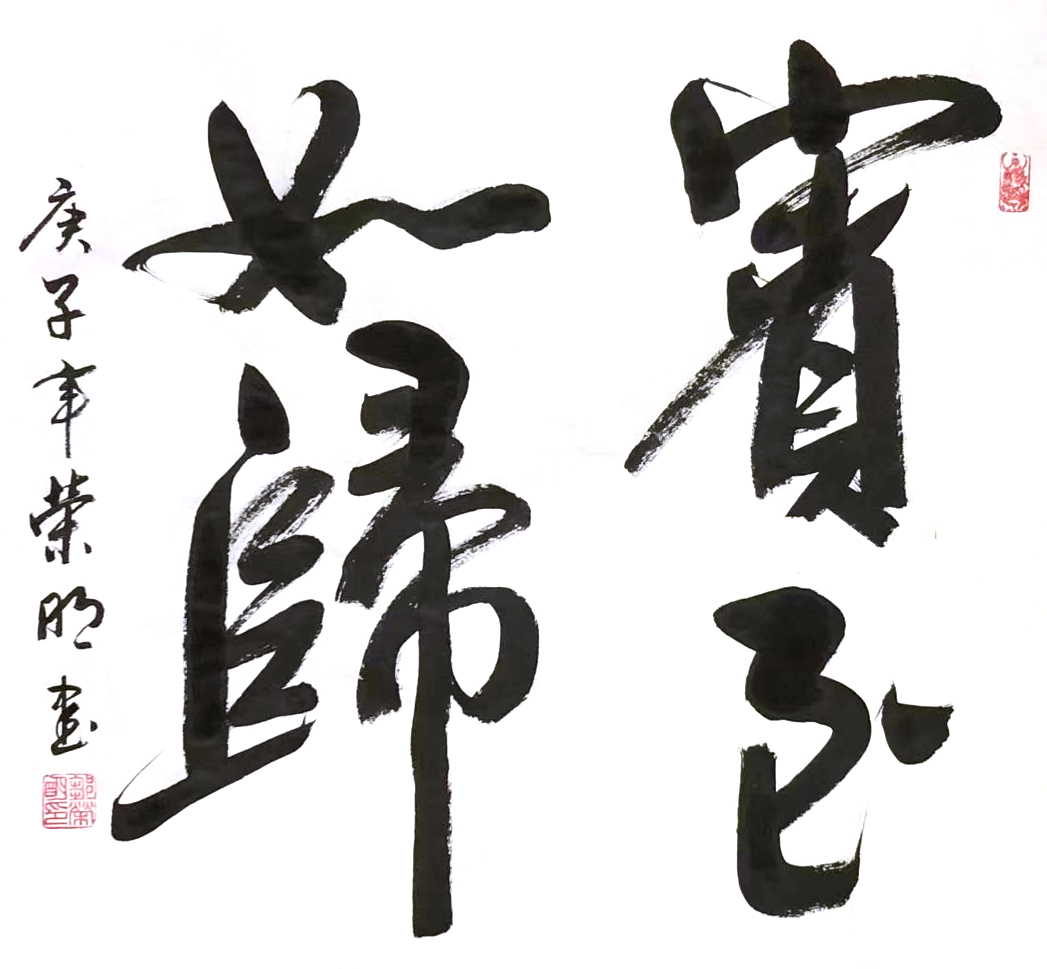 賓至
如歸
庚子年榮明書